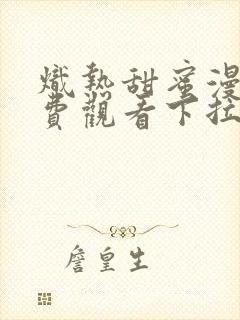 熾熱甜蜜漫
費觀看下拉
詹皇生